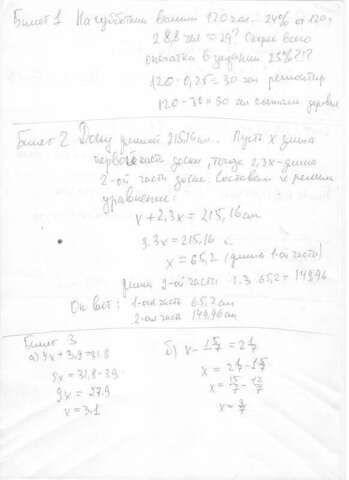 Билет 1 На субботник вышли 120 чел. 24% от 120 =
28,8 чел = 29? Скорее всего
опечатка в задании 25%?!?
120 · 0,25 = 30 чел ремонтир
120 - 30 = 90 чел сажали деревья
Билет 2 Доску длиной 215,16 см. Пусть x длина
первой части доски, тогда 2,3x - длина
2-ой части доски. Составим и решим
уравнение:
x + 2,3x = 215,16 см
3.3x = 215.16
x = 65,2 (длина 1-ой части)
длина 2-ой части: 2.3 · 65.2 = 149,96
Ответ: 1-ая часть 65,2 см
2-ая часть 149,96 см
Билет 3
а) 9x + 3,9 = 31,8
9x = 31,8 - 3,9
9x = 27.9
x = 3.1
б)